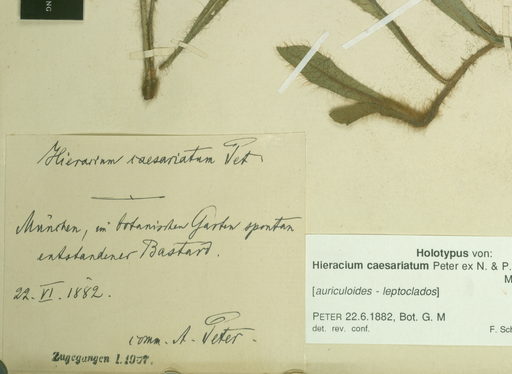 NG
Hieracium caesariatum Pet
München, im botanischen Garten spontan
entstandener Bastard.
22. VI. 1882.
comm. A. Peter.
Zugegangen I.
Holotypus von:
Hieracium caesariatum Peter ex N. & P.
M
[auriculoides - leptoclados]
PETER 22.6.1882, Bot. G. M
det. rev. conf. F. Sch